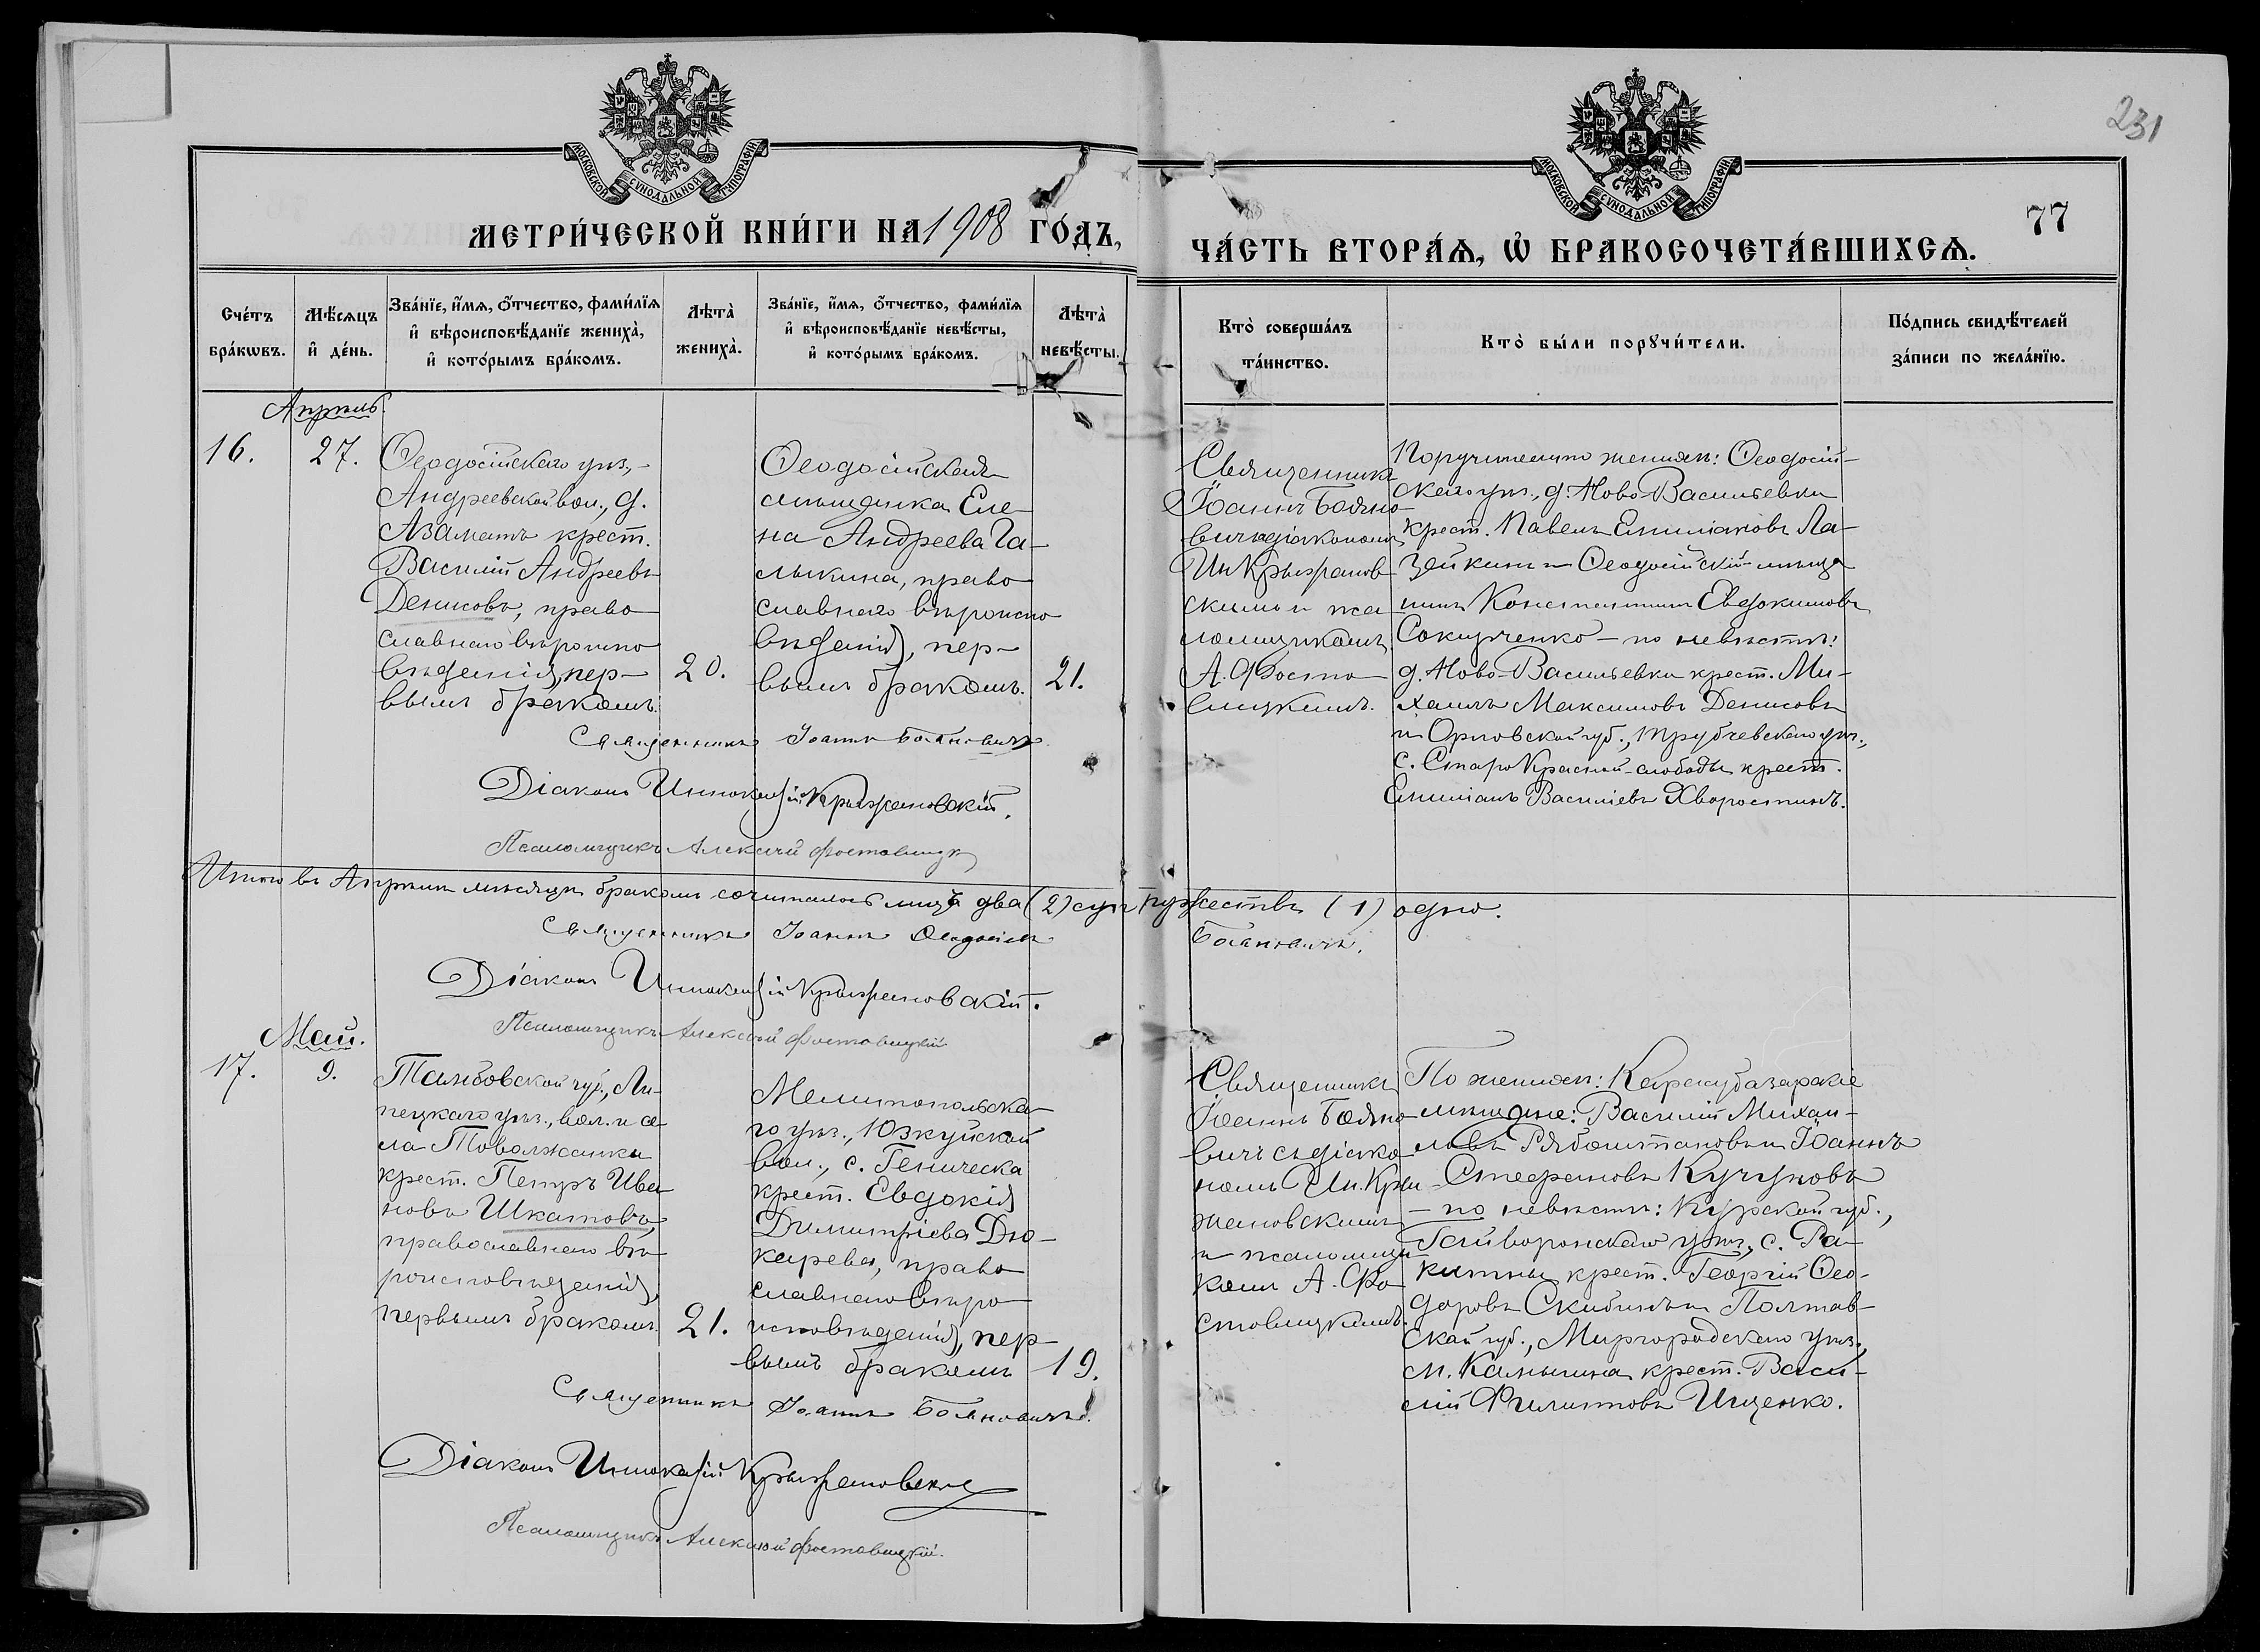 231
МОСКОВСКОЙ СѴНОДАЛЬНОЙ ТИПОГРАФІИ
МОСКОВСКОЙ СѴНОДАЛЬНОЙ ТИПОГРАФІИ
МЕТРИ́ЧЕСКОЙ КНИ́ГИ НА 1908 ГО́ДЪ,
ЧА́СТЬ ВТОРА́Ѧ, Ѽ БРАКОСОЧЕТА́ВШИХСѦ.
77
Сче́тъ
бра́кѡвъ.
Мѣ́сѧцъ
и҆ де́нь.
Зва́нїе, и҆́мѧ, ѻ҆́тчество, фами́лїѧ
и҆ вѣроисповѣ́данїе жениха̀,
и҆ кото́рымъ бра́комъ.
Лѣта̀
жениха̀.
Зва́нїе, и҆́мѧ, ѻ҆́тчество, фами́лїѧ
и҆ вѣроисповѣ́данїе невѣ́сты,
и҆ кото́рымъ бра́комъ.
Лѣта̀
невѣ́сты.
Кто̀ соверша́лъ
та́инство.
Кто̀ бы́ли порꙋчи́тели.
По́дпись свидѣ́телей
за́писи по жела́нїю.
Апрѣль.
16.
27.
Ѳеодосійскаго уѣз.,
Андреевской вол., д.
Азаматъ крест.
Василій Андреевъ
Денисовъ, право
славнаго вѣроиспо
вѣданія, пер-
вымъ бракомъ.
20.
Ѳеодосійская
мѣщанка Еле-
на Андреева Га-
лыкина, право
славнаго вѣроиспо
вѣданія, пер-
вымъ бракомъ.
21.
Священникъ
Іоаннъ Бояно-
вичъ діакономъ
Ин. Крыжанов
скимъ и пса
ломщикомъ
А. Фосто
вицкимъ.
Поручители по женихѣ: Ѳеодосій-
скаго уѣз., д. Ново-Васильевки
крест. Павелъ Емиліановъ Ла-
зейкинъ и Ѳеодосійскій мѣща
нинъ Константинъ Евдокимовъ
Сокурченко - по невѣстѣ:
д. Ново-Васильевки крест. Ми-
хаилъ Максимовъ Денисовъ
и Орловской губ., Трубчевскаго уѣз.,
с. Старо Красной-слободы крест.
Емиліанъ Василіевъ Хворостинъ.
Священникъ Іоаннъ Бояновичъ
Діаконъ Иннокентій Крыжановскій.
Псаломщикъ Алексѣй Фостовицкій
Итого въ Апрѣлѣ мѣсяцѣ бракомъ сочеталось лицъ два (2) супружествъ (1) одно.
Священникъ Іоаннъ Ѳеодосіевъ Бояновичъ.
Діаконъ Иннокентій Крыжановскій.
Псаломщикъ Алексѣй Фостовицкій
Май.
17.
9.
Тамбовской губ., Ли-
пецкаго уѣз., вол. и се
ла Товолжанки
крест. Петръ Ива
новъ Шкатовъ,
православнаго вѣ
роисповѣданія,
первымъ бракомъ.
21.
Мелитопольска-
го уѣз., Юзкуйской
вол., с. Геническа
крест. Евдокія
Димитріева Дю-
карева, право
славнаго вѣро
исповѣданія, пер-
вымъ бракомъ
19.
Священникъ
Іоаннъ Бояно-
вичъ съ діако
номъ Ин. Кры-
жановскимъ
и псаломщи
комъ А. Фо
стовицкимъ.
По женихѣ: Карасубазарскіе
мѣщане: Василій Михаи-
ловъ Рябоштановъ и Іоаннъ
Стефановъ Кучуковъ
- по невѣстѣ: Курской губ.,
Грайворонскаго уѣз., с. Ра-
китны крест. Георгій Ѳео-
доровъ Скибинъ и Полтав-
ской губ., Миргородскаго уѣз.,
м. Камышна крест. Васи-
лій Филиповъ Ищенко.
Священникъ Іоаннъ Бояновичъ.
Діаконъ Иннокентій Крыжановскій
Псаломщикъ Алексѣй Фостовицкій.